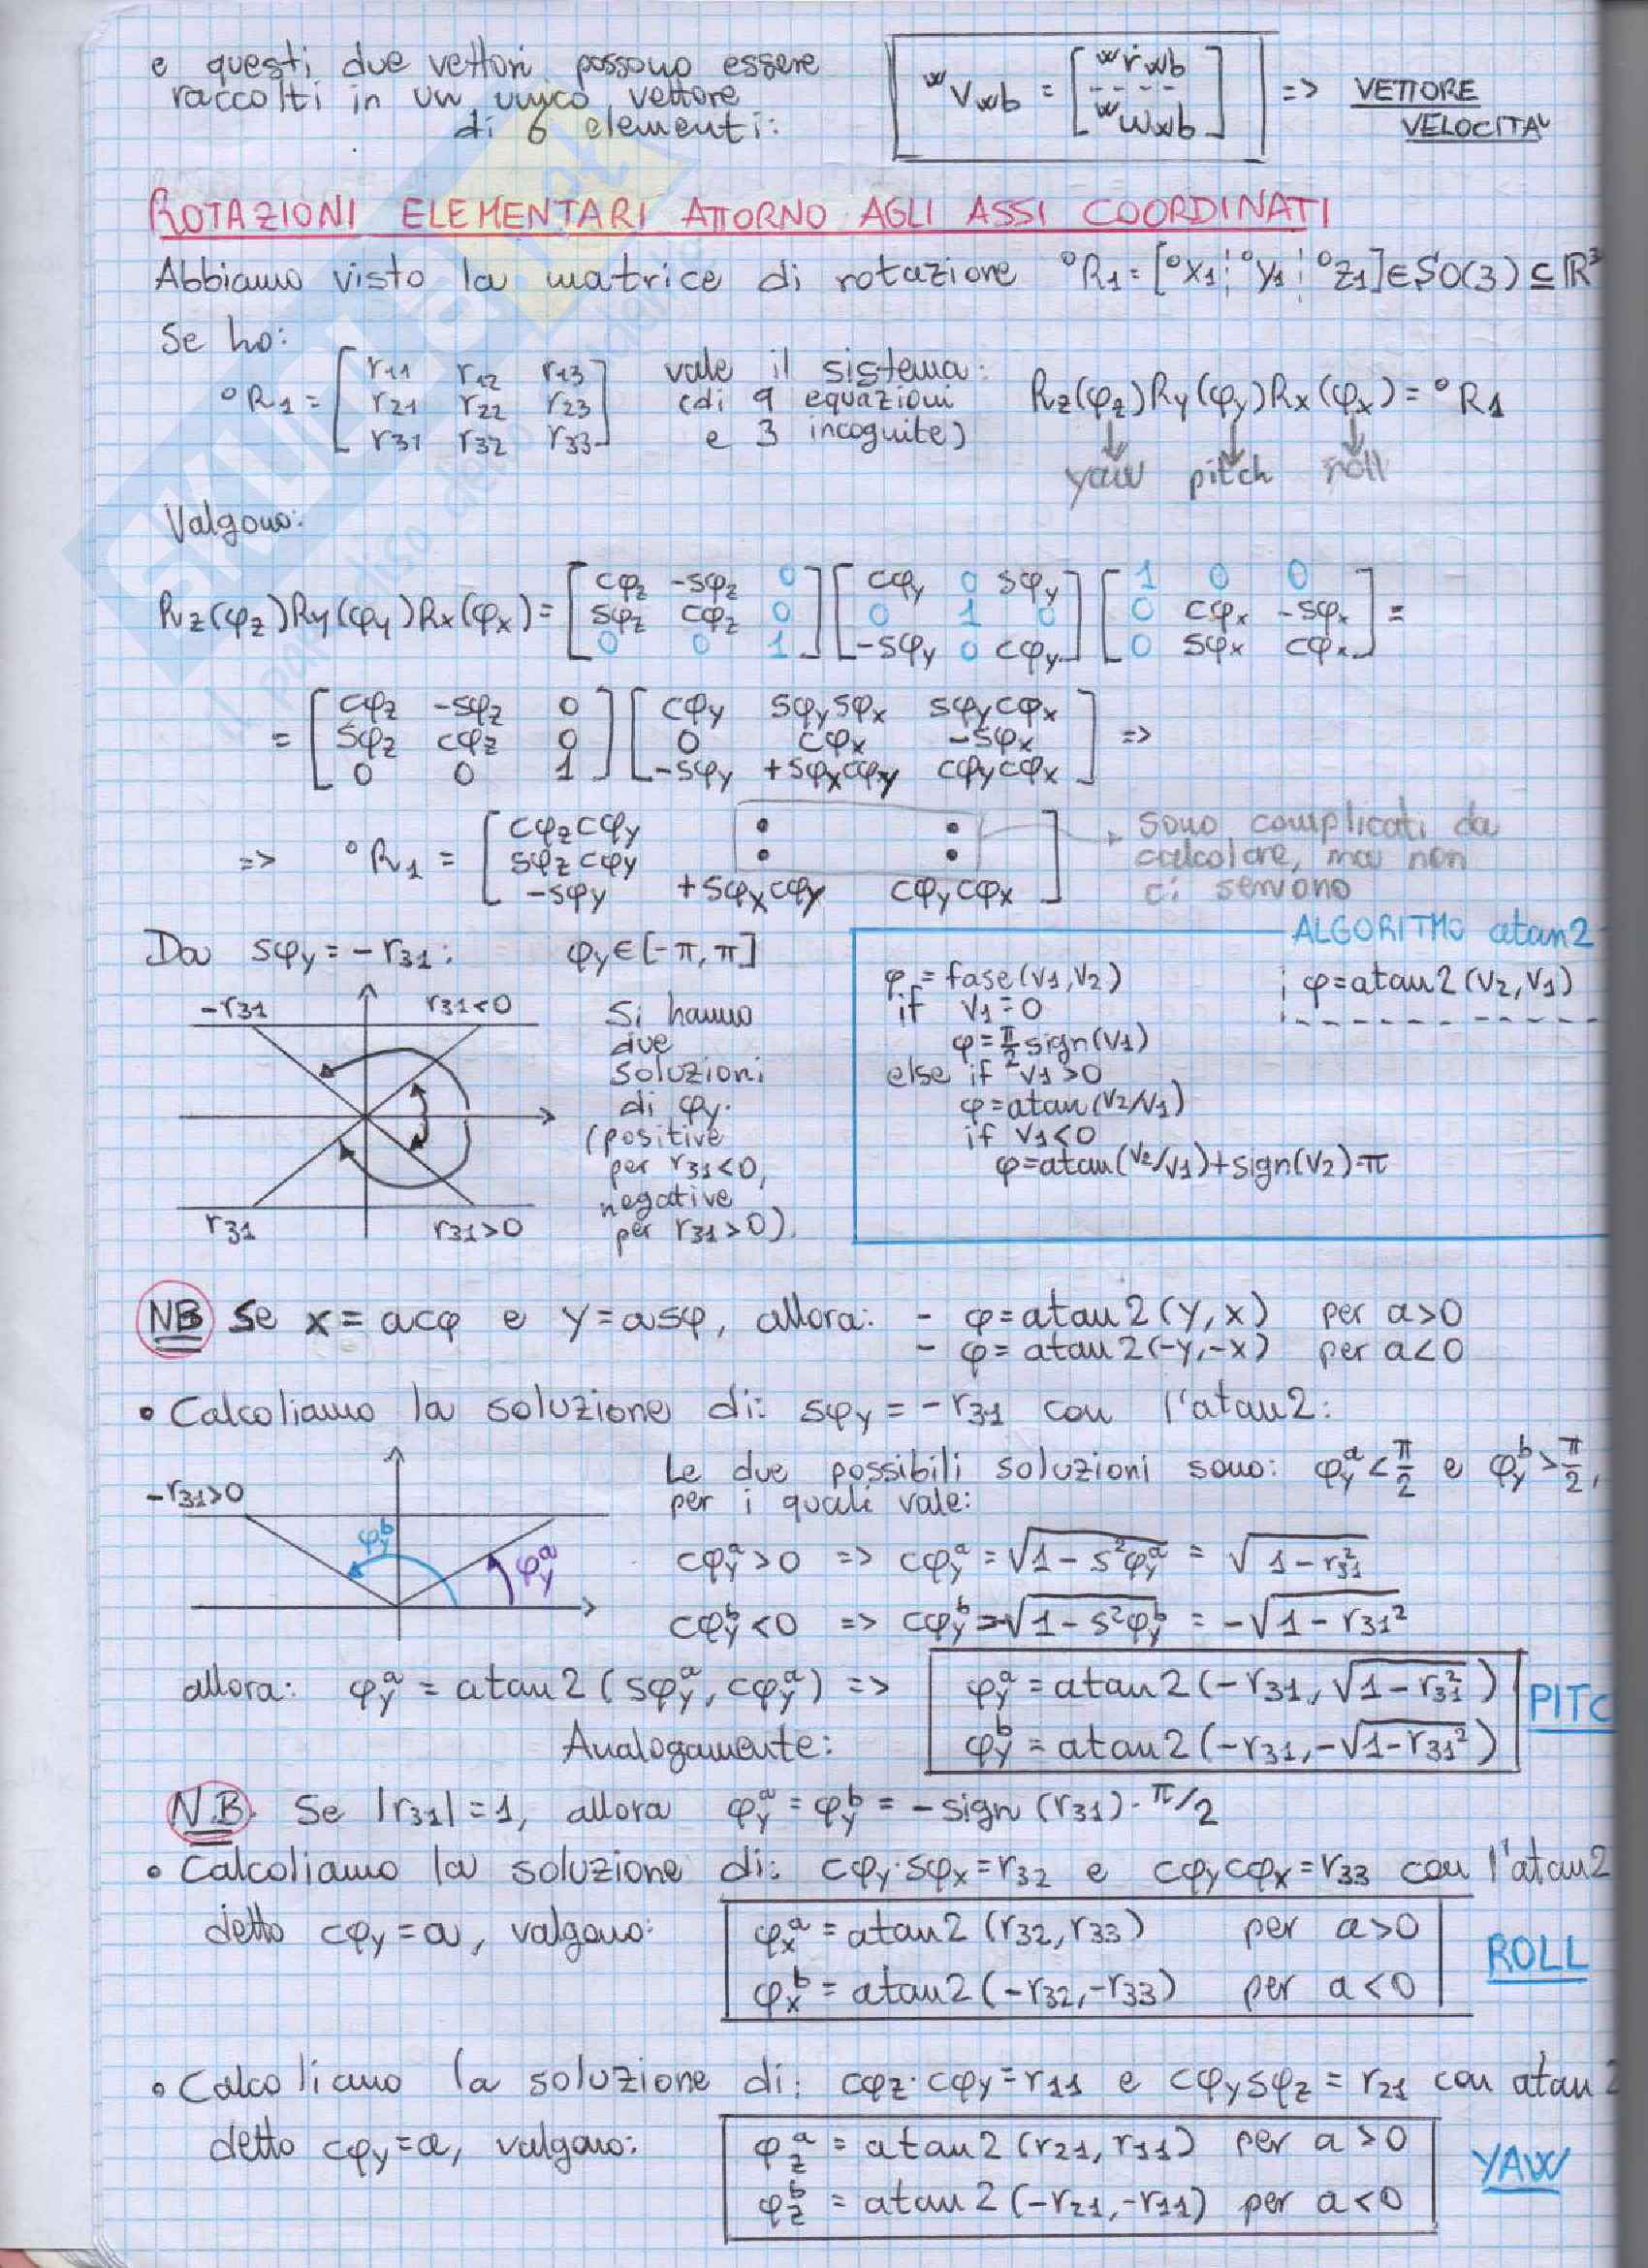 e questi due vettori possono essere
raccolti in un unico vettore
di 6 elementi:
ʷVwb = [ʷṙwb ---- ʷωwb] => VETTORE
VELOCITA'
ROTAZIONI ELEMENTARI ATTORNO AGLI ASSI COORDINATI
Abbiamo visto la matrice di rotazione °R1=[°x1¦°y1¦°z1]∈SO(3)⊆ℝ³
Se ho:
°R1 = [r11 r12 r13
r21 r22 r23
r31 r32 r33]
vale il sistema:
(di 9 equazioni
e 3 incognite)
Rz(φz)Ry(φy)Rx(φx)=°R1
yaw pitch roll
Valgono:
Rz(φz)Ry(φy)Rx(φx)= [cφz -sφz 0
sφz cφz 0
0 0 1] [cφy 0 sφy
0 1 0
-sφy 0 cφy] [1 0 0
0 cφx -sφx
0 sφx cφx] =
= [cφz -sφz 0
sφz cφz 0
0 0 1] [cφy sφysφx sφycφx
0 cφx -sφx
-sφy +sφxcφy cφycφx] =>
=> °R1 = [cφzcφy • •
sφzcφy • •
-sφy +sφxcφy cφycφx]
sono complicati da
calcolare, ma non
ci servono
Da sφy = -r31: φy∈[-π,π]
-r31 r31<0
r31 r31>0
Si hanno
due
soluzioni
di φy.
(positive
per r31<0,
negative
per r31>0).
ALGORITMO atan2
φ=fase(v1,v2)
φ=atan2(v2,v1)
if v1=0
φ=π/2 sign(v1)
else if v1>0
φ=atan(v2/v1)
if v1<0
φ=atan(v2/v1)+sign(v2)·π
NB Se x=acφ e y=asφ, allora: - φ=atan2(y,x) per a>0
- φ=atan2(-y,-x) per a<0
• Calcoliamo la soluzione di: sφy = -r31 con l'atan2:
-r31>0
φy^b
φy^a
Le due possibili soluzioni sono: φy^a<π/2 e φy^b>π/2,
per i quali vale:
cφy^a>0 => cφy^a = √1-s²φy^a = √1-r31²
cφy^b<0 => cφy^b=-√1-s²φy^b = -√1-r31²
allora: φy^a = atan2(sφy^a, cφy^a) => φy^a = atan2(-r31, √1-r31²)
PITC
Analogamente: φy^b = atan2(-r31, -√1-r31²)
N.B. Se |r31|=1, allora φy^a = φy^b = -sign(r31)·π/2
• Calcoliamo la soluzione di: cφy·sφx=r32 e cφycφx=r33 con l'atan2
detto cφy=a, valgono: φx^a = atan2(r32,r33) per a>0
ROLL
φx^b = atan2(-r32,-r33) per a<0
• Calcoliamo la soluzione di: cφz·cφy=r11 e cφysφz=r21 con atan2
detto cφy=a, valgono: φz^a = atan2(r21,r11) per a>0
YAW
φz^b = atan2(-r21,-r11) per a<0